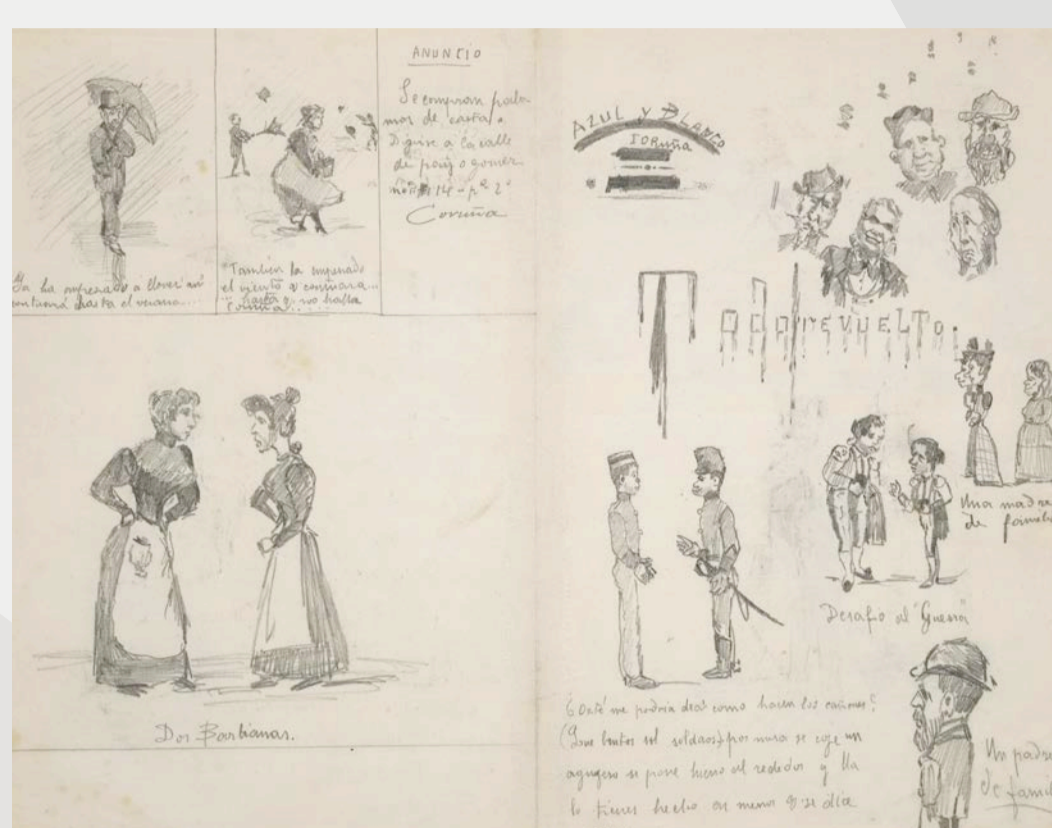 Ya ha empezado a llover así
continuará hasta el verano...
"También ha empezado
el viento y continuara...
hasta q no halla
Coruña....
ANUNCIO
Se compran palo
mos de casta.
Dirigirse a la calle
de payo gomez
14 - pº 2º
Coruña
Dos Barbianas.
AZUL Y BLANCO
CORUÑA
TODO REVUELTO.
Una madre
de famili
Desafio al "Guerra"
¿Osté me podría dear como hacen los cañones?
(Que brutos sol soldaos) por nusa se coje un
agugero se pone hierro al rededor y lla
lo tienes hecho en menos q se dice
Un padre
de famil